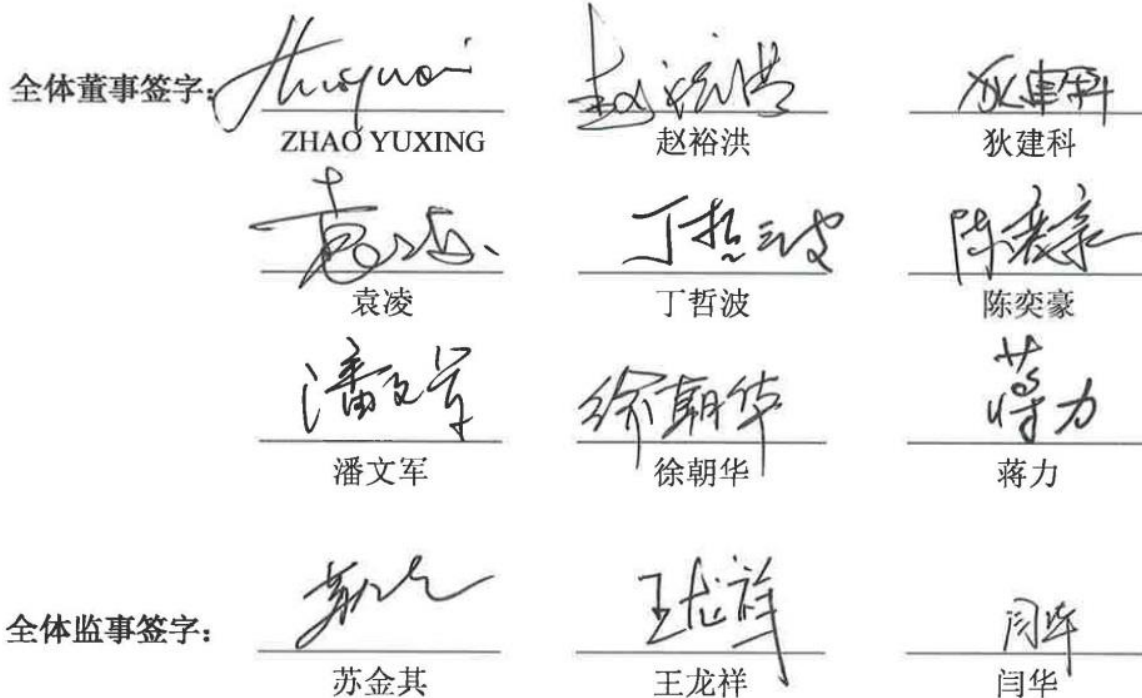 全体董事签字:
ZHAO YUXING 赵裕洪 狄建科
袁凌 丁哲波 陈奕豪
潘文军 徐朝华 蒋力
全体监事签字:
苏金其 王龙祥 闫华